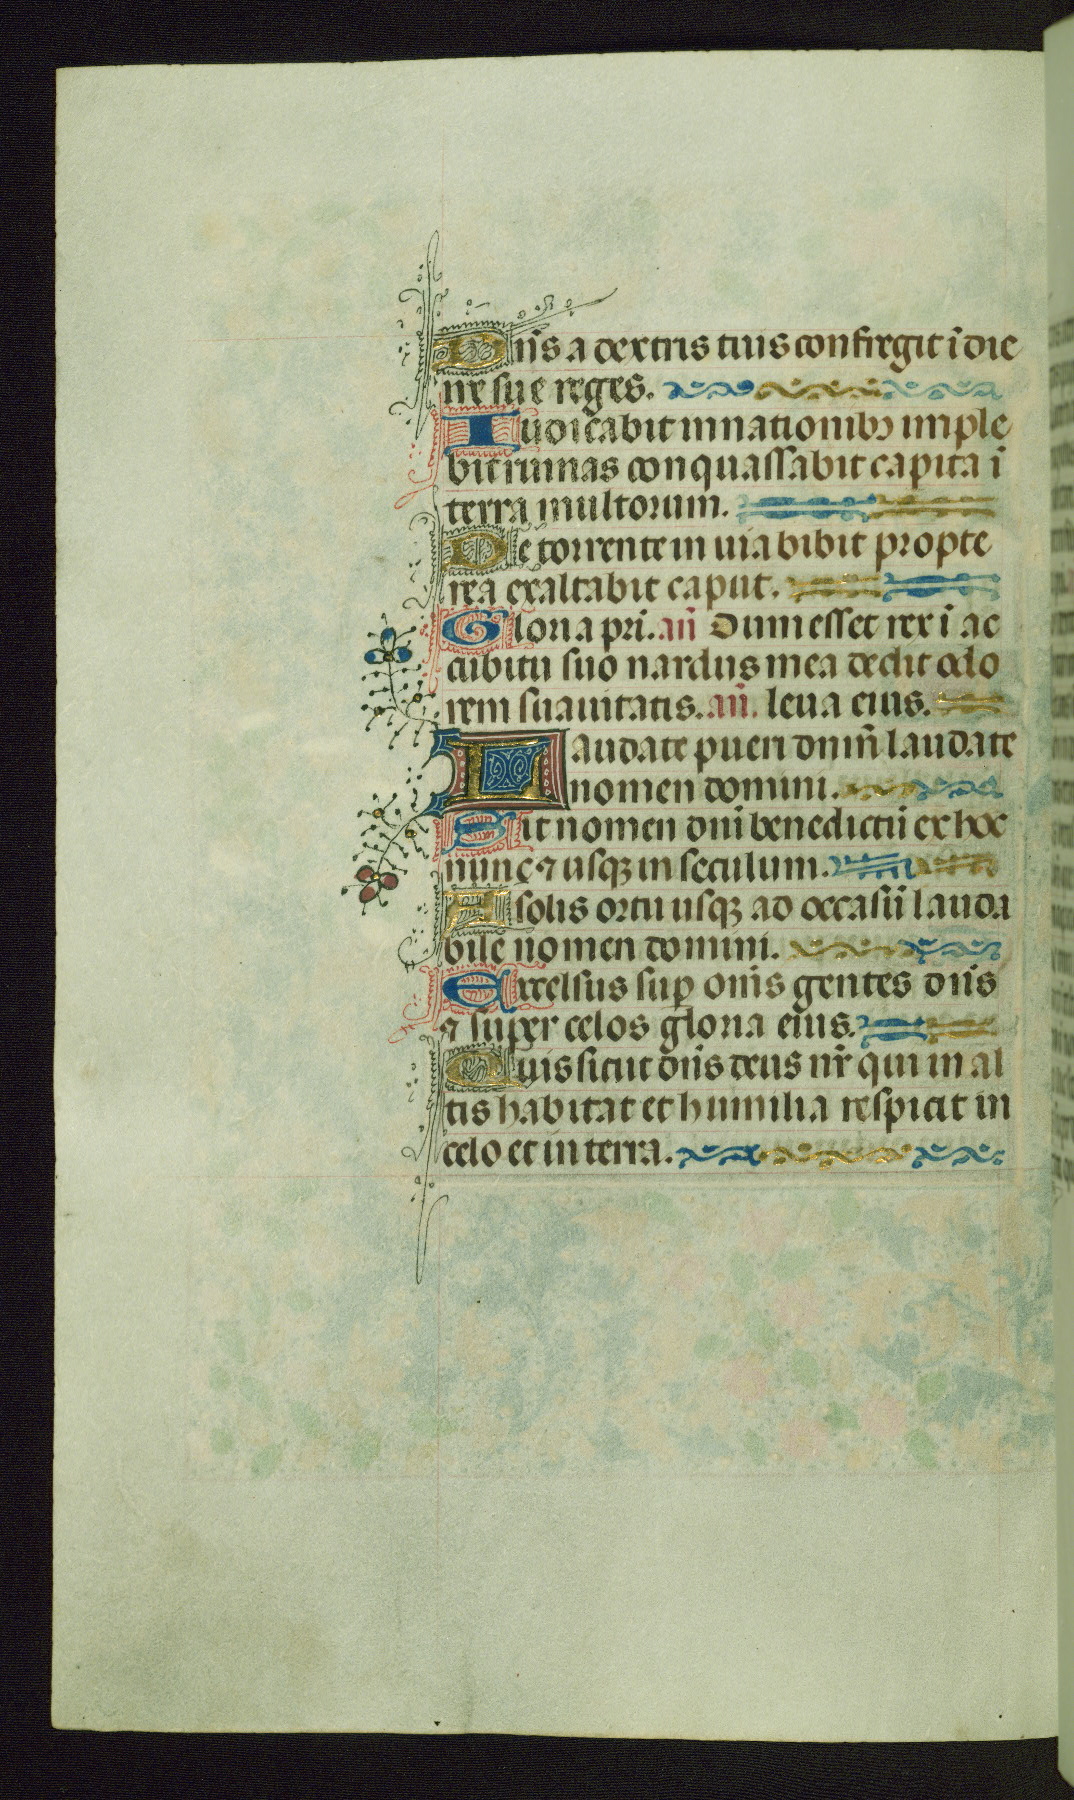 Dn̄s a dextris tuis confregit ī die
ire sue reges.
Iudicabit in nationibꝫ imple
bit ruinas conquassabit capita ī
terra multorum.
De torrente in uia bibit propte
rea exaltabit caput.
Gloria pri. an̄ Dum esset rex ī ac
cubitu suo nardus mea dedit odo
rem suauitatis. an̄. leua eius.
Laudate pueri dnm̄ laudate
nomen domini.
Sit nomen dnī benedictū ex hoc
nunc ⁊ usqꝫ in seculum.
A solis ortu usqꝫ ad occasū lauda
bile nomen domini.
Excelsus suꝑ om̄s gentes dn̄s
⁊ super celos gloria eius.
Quis sicut dn̄s deus nr̄ qui in al
tis habitat et humilia respicit in
celo et in terra.